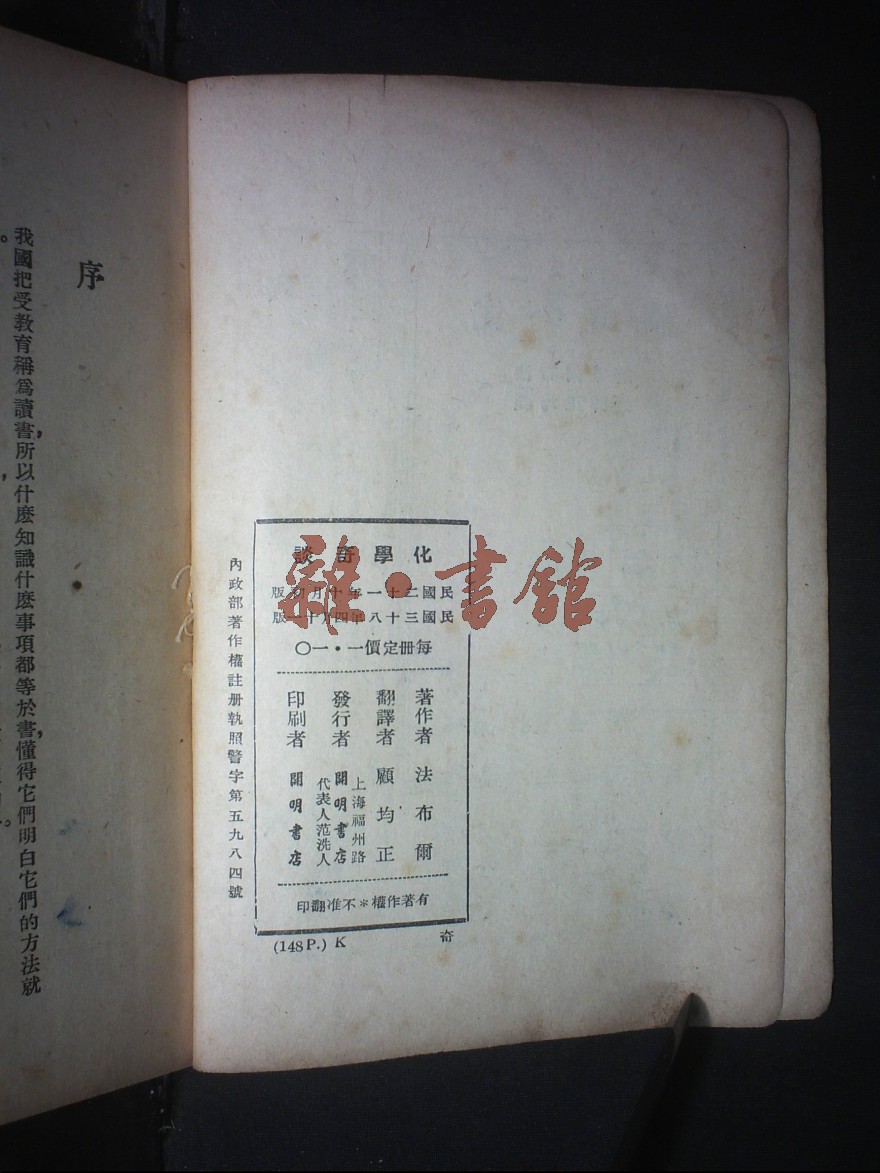 化學奇談
民國二十一年十月初版
民國三十八年四月十一版
每冊定價一·一〇
著作者 法布爾
翻譯者 顧均正
發行者 上海福州路 開明書店 代表人范洗人
印刷者 開明書店
有著作權*不准翻印
內政部著作權註册執照警字第五九八四號
(148P.) K 奇
雜·書館
序
我國把受教育稱爲讀書,所以什麼知識什麼事項都等於書,懂得它們明白它們的方法就